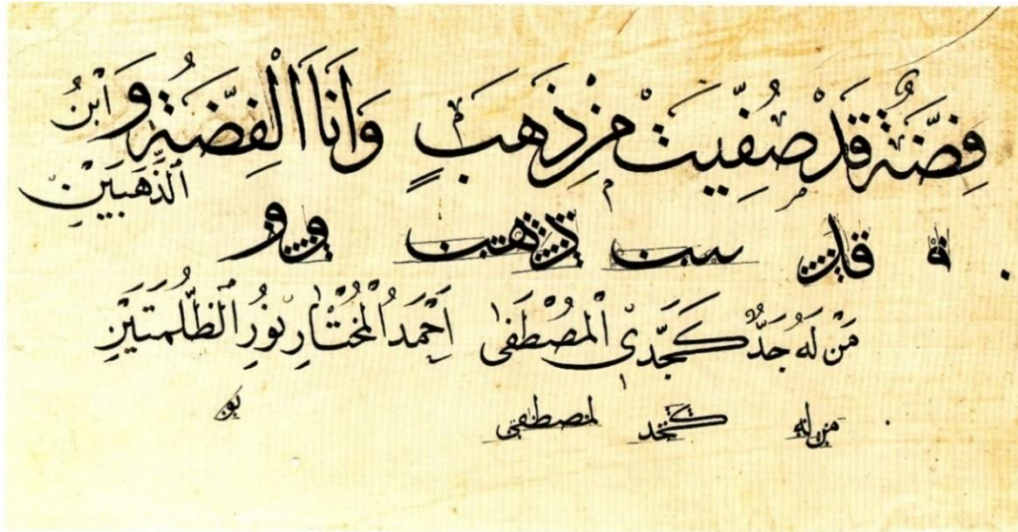 فِضَّةٌ قَدْ صُفِّيَتْ مِنْ ذَهَبٍ وَاَنَا الْفِضَّةُ وَابْنُ
الذَّهَبَيْنِ
ة قد ذهب و و
مَنْ لَهُ جَدٌّ كَجَدِّي الْمُصْطَفَى اَحْمَدُ الْمُخْتَارِ نُورِ الظُّلْمَتَيْنِ
من له كجد لمصطفى